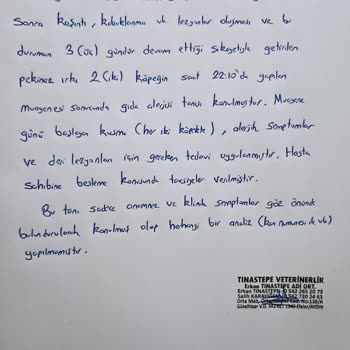 Sonra kaşıntı, kabuklanma ve lezyonlar oluşması ve bu
durumun 3 (üç) gündür devam ettiği şikayetiyle getirilen
pekinez ırkı 2 (iki) köpeğin saat 22:10'da yapılan
muayenesi sonrasında gıda alerjisi tanısı konulmuştur. Muayene
günü başlayan kusma (her iki köpekte), alerjik semptomlar
ve deri lezyonları için gereken tedavi uygulanmıştır. Hasta
sahibine besleme konusunda tavsiyeler verilmiştir.
Bu tanı sadece anemnez ve klinik semptomlar göz önünde
bulundurularak konulmuş olup herhangi bir analiz (kan numunesi vb)
yapılmamıştır.
TINASTEPE VETERİNERLİK
Erkan TINASTEPE ADİ ORT.
Erkan TINASTEPE 0 542 265 20 73
Salih 542 720 24 63
Orta Mah. No:138/A
Güzelhisar V.D. Efeler/AYDIN